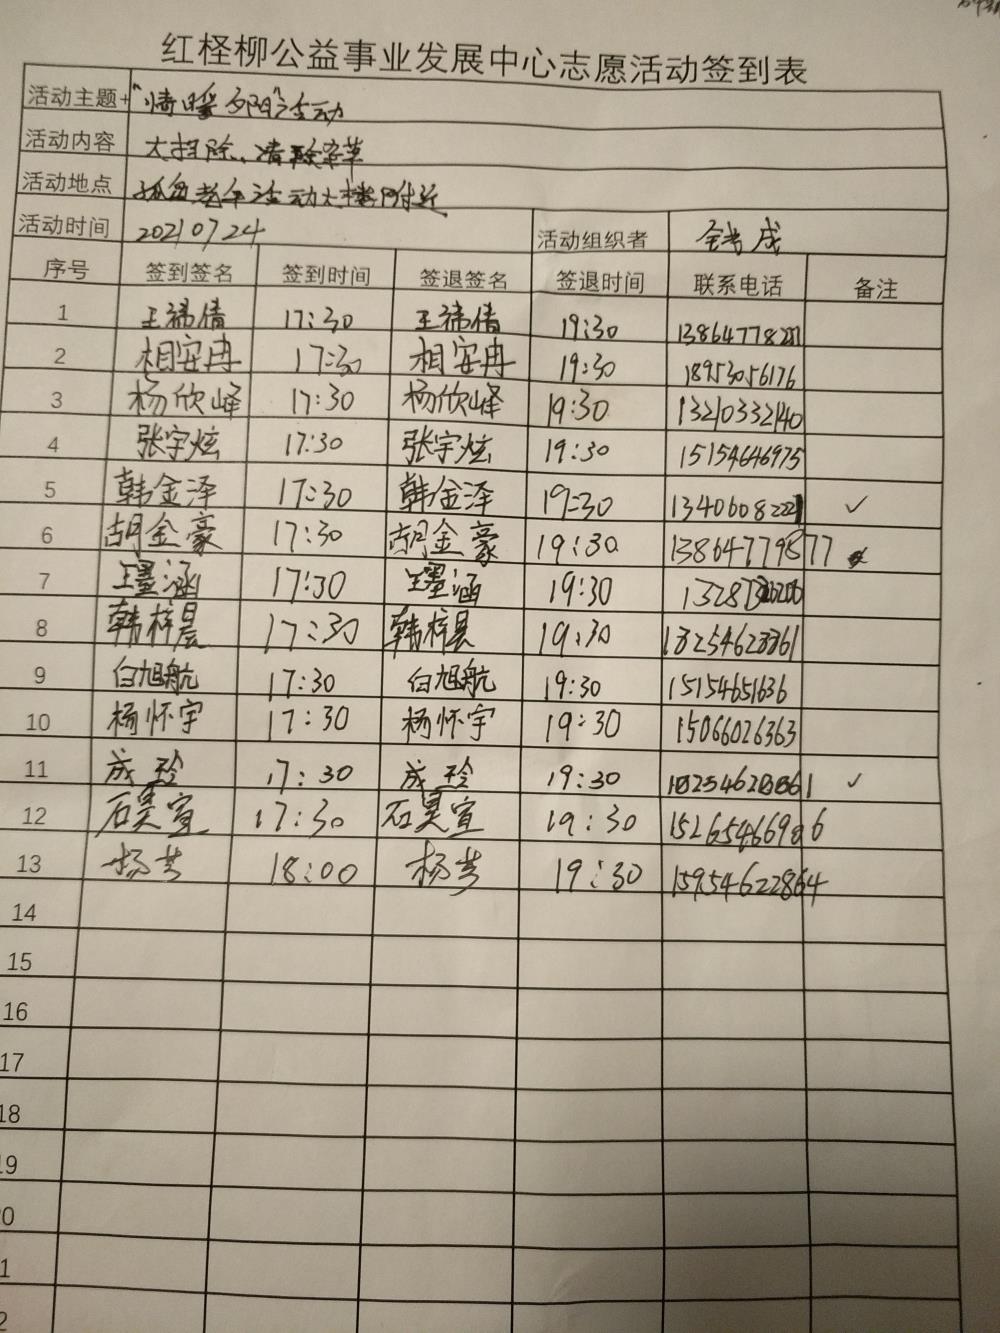 红柽柳公益事业发展中心志愿活动签到表
活动主题 "情暖夕阳"活动
活动内容 大扫除、清除杂草
活动地点 孤岛老年活动大楼附近
活动时间 20210724 活动组织者
序号 签到签名 签到时间 签退签名 签退时间 联系电话 备注
1 王祎倩 17:30 王祎倩 19:30
2 相安冉 17:30 相安冉 19:30 18953056176
3 杨欣峰 17:30 杨欣峰 19:30 13210332140
4 张宇炫 17:30 张宇炫 19:30 15154646975
5 韩金泽 17:30 韩金泽 19:30 ✓
6 胡金豪 17:30 胡金豪 19:30 13864779877
7 王墨涵 17:30 王墨涵 19:30
8 韩梓晨 17:30 韩梓晨 19:30
9 白旭航 17:30 白旭航 19:30 15154651636
10 杨怀宇 17:30 杨怀宇 19:30 15066026363
11 成玲 17:30 成玲 19:30 ✓
12 石昊宣 17:30 石昊宣 19:30
13 杨芳 18:00 杨芳 19:30 15954622864
14
15
16
17
18
19